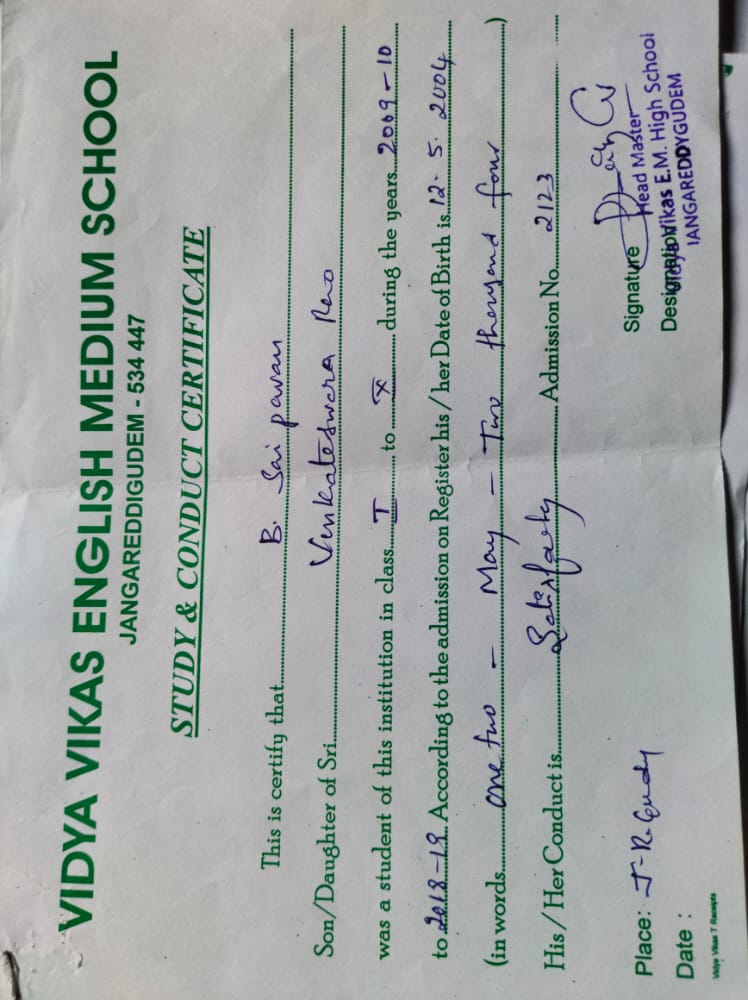 VIDYA VIKAS ENGLISH MEDIUM SCHOOL
JANGAREDDIGUDEM - 534 447
STUDY & CONDUCT CERTIFICATE
This is certify that B. Sai pavan
Son/Daughter of Sri Venkateswara Rao
was a student of this institution in class I to X during the years 2009-10
to 2018-19 According to the admission on Register his / her Date of Birth is 12. 5. 2004
(in words one two - May - Two thousand four )
His / Her Conduct is Admission No. 2123
Signature
Head Master
Designation
Vidya Vikas E.M. High School
JANGAREDDYGUDEM
Place: J-R Gudy
Date :
Vidya Vikas T Receipts